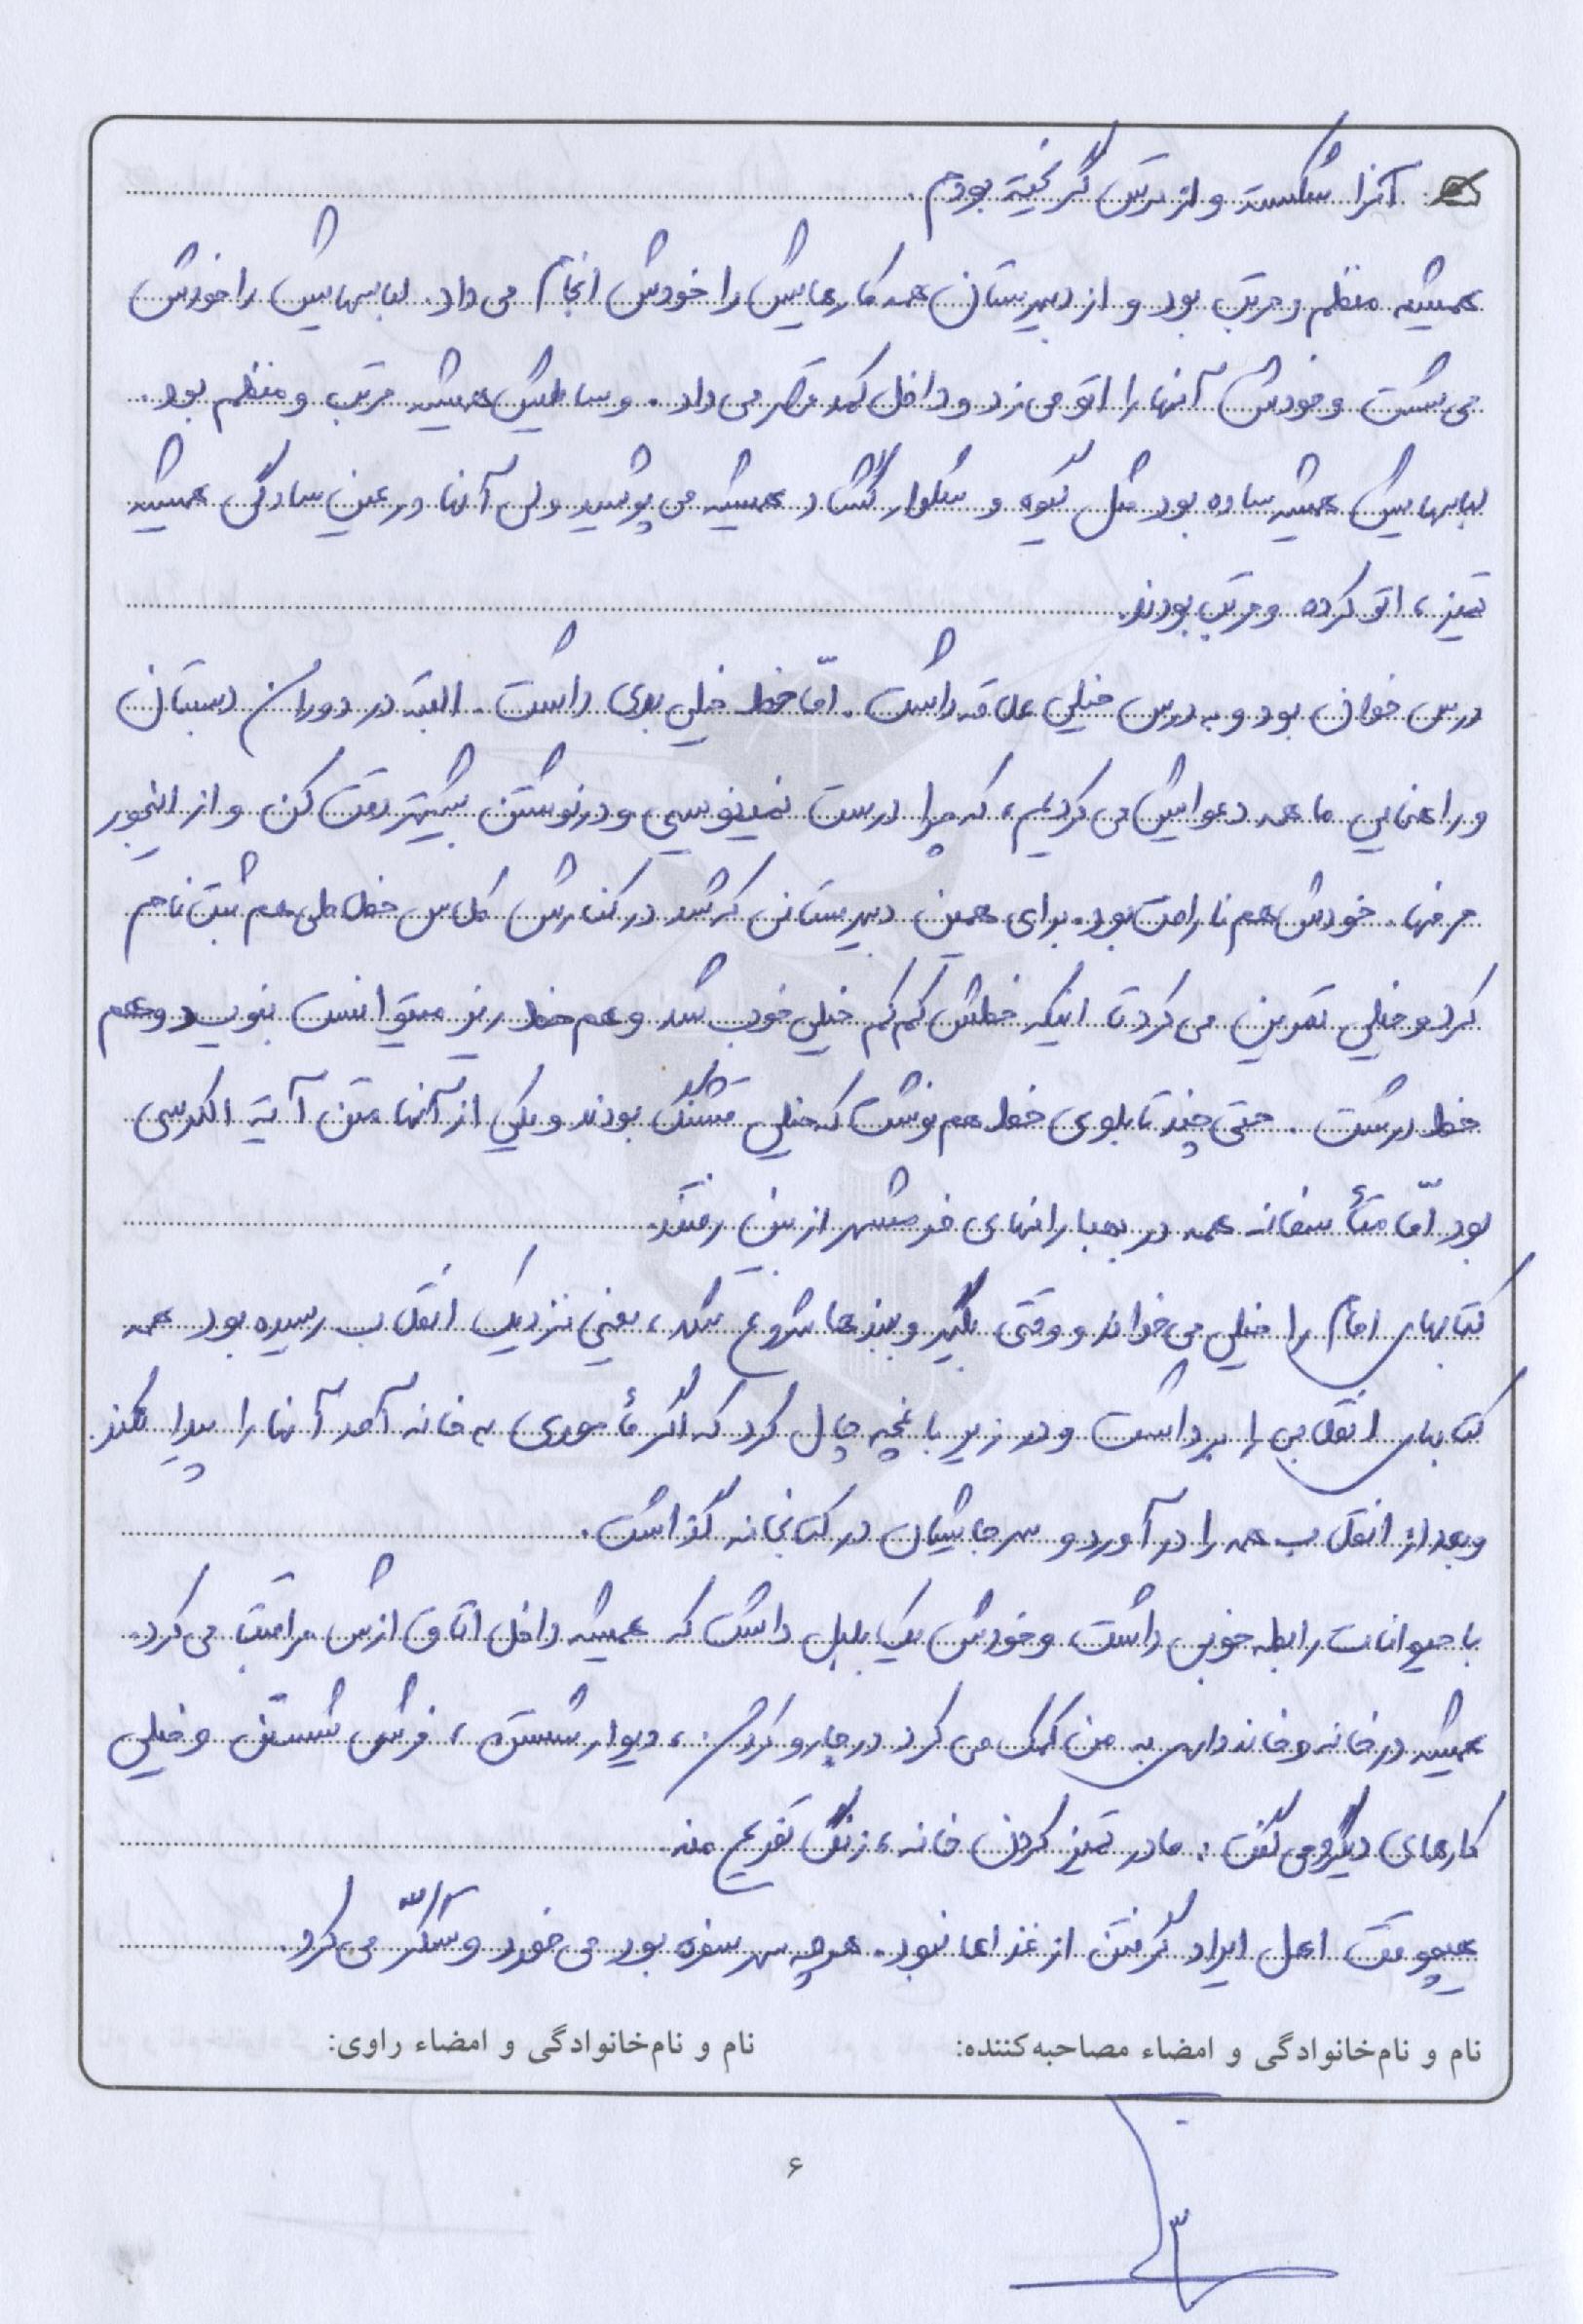 آنرا شکسته و از ترس گریخته بودم.
همیشه منظم و مرتب بود و از دبیرستان همه کارهایش را خودش انجام می‌داد. لباسهایش را خودش
می‌شست و خودش آنها را اتو می‌زد و داخل کمد قرار می‌داد. وسایلش همیشه مرتب و منظم بود.
لباسهایش همیشه ساده بود مثل گیوه و شلوار گشاد همیشه می‌پوشید ولی آنها در عین سادگی همیشه
تمیز، اتو کرده و مرتب بودند.
درس خوان بود و به درس خیلی علاقه داشت. امّا خط خیلی بدی داشت. البته در دوران دبستان
و راهنمایی ما همه دعوایش می‌کردیم، که چرا درست نمینویسی و در نوشتن بیشتر دقت کن و از اینجور
حرفها. خودش هم ناراحت بود. برای همین دبیرستانی که شد در کنارش کلاس خطاطی هم ثبت نام
کرد و خیلی تمرین می‌کرد تا اینکه خطش کم کم خیلی خوب شد و هم خط ریز میتوانست بنویسد و هم
خط درشت. حتی چند تابلوی خط هم نوشت که خیلی قشنگ بودند و یکی از آنها متن آیة الکرسی
بود امّا متأسفانه همه در بمبارانهای خرمشهر از بین رفتند.
کتابهای امام را خیلی می‌خواند و وقتی بگیر و ببندها شروع شد، یعنی نزدیک انقلاب رسیده بود همه
کتابهای انقلابی را برداشت و در زیر باغچه چال کرد که اگر مأموری به خانه آمد آنها را پیدا نکند.
و بعد از انقلاب همه را در آورد و سر جایشان در کتابخانه گذاشت.
با حیوانات رابطه خوبی داشت و خودش یک بلبل داشت که همیشه داخل اتاق ازش مراقبت می‌کرد.
همیشه در خانه و خانه‌داری به من کمک می‌کرد در جارو کردن، دیوار شستن، فرش شستن و خیلی
کارهای دیگر و می‌گفت: مادر تمیز کردن خانه، زنگ تفریح منه.
هیچوقت اهل ایراد گرفتن از غذاها نبود. هرچه سر سفره بود می‌خورد و تشکّر می‌کرد.
نام و نام‌خانوادگی و امضاء مصاحبه‌کننده: نام و نام‌خانوادگی و امضاء راوی:
۶